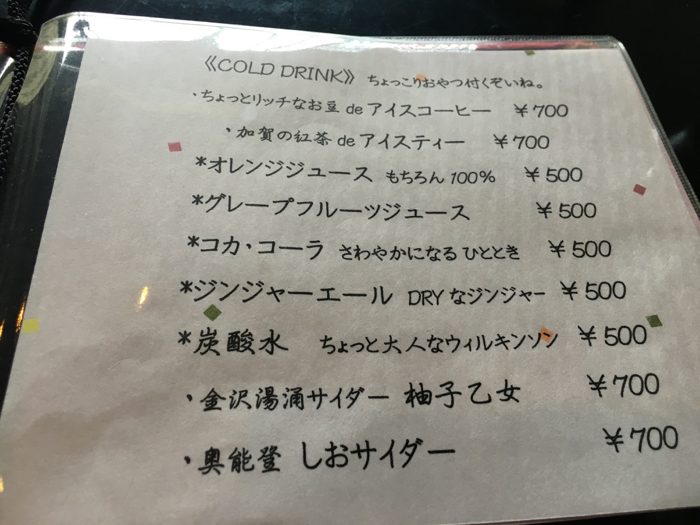 《COLD DRINK》 ちょっこりおやつ付くぞいね。
・ちょっとリッチなお豆 de アイスコーヒー ￥700
・加賀の紅茶 de アイスティー ￥700
*オレンジジュース もちろん 100% ￥500
*グレープフルーツジュース ￥500
*コカ・コーラ さわやかになる ひととき ￥500
*ジンジャーエール DRY なジンジャー ￥500
*炭酸水 ちょっと大人なウィルキンソン ￥500
・金沢湯涌サイダー 柚子乙女 ￥700
・奥能登 しおサイダー ￥700